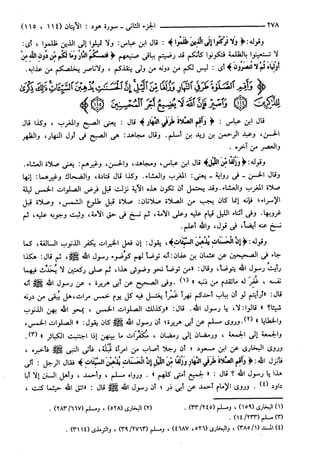 ٢٧٨ ــــــــــــ الجزء الثاني - سورة هود : الآيتان ( ١١٤ ، ١١٥ )
وقوله: ﴿ وَلَا تَرْكَنُوا إِلَى الَّذِينَ ظَلَمُوا ﴾ : قال ابن عباس: ولا تميلوا إلى الذين ظلموا ، أى:
لا تستعينوا بالظلمة فتكونوا كأنكم قد رضيتم بباقى صنيعهم ﴿ فَتَمَسَّكُمُ النَّارُ وَمَا لَكُم مِّن دُونِ اللَّهِ مِنْ
أَوْلِيَاءَ ثُمَّ لَا تُنصَرُونَ ﴾ أى : ليس لكم من دونه من ولى ينقذكم ، ولا ناصر يخلصكم من عذابه.
﴿ وَأَقِمِ الصَّلَاةَ طَرَفَيِ النَّهَارِ وَزُلَفًا مِّنَ اللَّيْلِ إِنَّ الْحَسَنَاتِ يُذْهِبْنَ السَّيِّئَاتِ ذَٰلِكَ ذِكْرَىٰ
لِلذَّاكِرِينَ ﴿١١٤﴾ وَاصْبِرْ فَإِنَّ اللَّهَ لَا يُضِيعُ أَجْرَ الْمُحْسِنِينَ ﴿١١٥﴾
قال ابن عباس : ﴿ وَأَقِمِ الصَّلَاةَ طَرَفَيِ النَّهَارِ ﴾ قال : يعنى الصبح والمغرب ، وكذا قال
الحسن، وعبد الرحمن بن زيد بن أسلم. وقال مجاهد: هى الصبح فى أول النهار، والظهر
والعصر من آخره .
وقوله: ﴿ وَزُلَفًا مِّنَ اللَّيْلِ ﴾ قال ابن عباس، ومجاهد، والحسن، وغيرهم: يعنى صلاة العشاء.
وقال الحسن - فى رواية - يعنى: المغرب والعشاء. وكذا قال قتادة، والضحاك وغيرهما: إنها
صلاة المغرب والعشاء. وقد يحتمل أن تكون هذه الآية نزلت قبل فرض الصلوات الخمس ليلة
الإسراء؛ فإنه إنما كان يجب من الصلاة صلاتان: صلاة قبل طلوع الشمس، وصلاة قبل
غروبها. وفى أثناء الليل قيام عليه وعلى الأمة، ثم نسخ فى حق الأمة، وثبت وجوبه عليه، ثم
نسخ عنه أيضاً، فى قول، والله أعلم.
وقوله: ﴿ إِنَّ الْحَسَنَاتِ يُذْهِبْنَ السَّيِّئَاتِ ﴾، يقول: إن فعل الخيرات يكفر الذنوب السالفة، كما
جاء فى الصحيحين عن عثمان بن عفان: أنه توضأ لهم كوضوء رسول الله ﷺ، ثم قال: هكذا
رأيتُ رسول الله يتوضأ، وقال: «من توضأ نحو وضوئى هذا، ثم صلى ركعتين لا يُحدِّث فيهما
نفسه ، غُفِرَ له ماتقدم من ذنبه » (١). وفى الصحيح عن أبى هريرة ، عن رسول الله ﷺ أنه
قال: «أرأيتم لو أن بباب أحدكم نهراً غمراً يغتسل فيه كل يوم خمس مرات، هل يبقى من درنه
شيئاً؟ » قالوا: لا، يا رسول الله. قال: «وكذلك الصلوات الخمس ، يمحو الله بهن الذنوب
والخطايا » (٢). وروى مسلم عن أبى هريرة؛ أن رسول الله ﷺ كان يقول: « الصلوات الخمس،
والجمعة إلى الجمعة ، ورمضان إلى رمضان ، مكفّرات ما بينهن إذا اجتنبت الكبائر » (٣).
وروى البخارى عن ابن مسعود ؛ أن رجلا أصاب من امرأة قُبلةً، فأتى النبى ﷺ فأخبره ،
فأنزل الله: ﴿ وَأَقِمِ الصَّلَاةَ طَرَفَيِ النَّهَارِ وَزُلَفًا مِّنَ اللَّيْلِ إِنَّ الْحَسَنَاتِ يُذْهِبْنَ السَّيِّئَاتِ ﴾ فقال الرجل : ألى
هذا يا رسول الله ؟ قال : « لجميع أمتى كلهم » . ورواه مسلم ، وأحمد ، وأهل السنن إلا أبا
داود (٤) . وروى الإمام أحمد عن أبى ذر ؛ أن رسول الله ﷺ قال: « اتق الله حيثما كنت ،
(١) البخارى (١٥٩)، ومسلم (٢٢٦). (٢) البخارى (٥٢٨)، ومسلم (٦٦٧/ ٢٨٣).
(٣) مسلم (٢٣٣/ ١٤).
(٤) المسند (١/ ٣٨٥)، والبخارى (٥٢٦، ٤٦٨٧)، ومسلم (٢٧٦٣/ ٣٩)، والترمذى (٣١١٤).